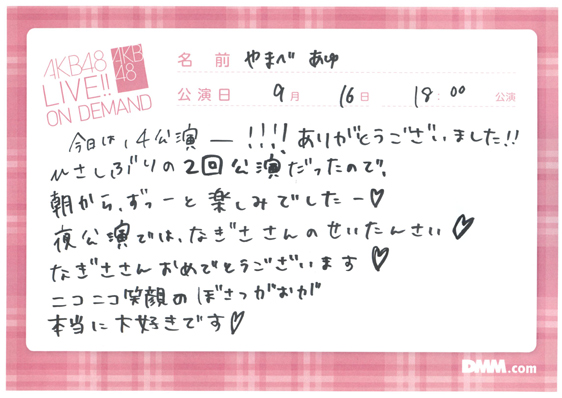 AKB48
LIVE!!
ON DEMAND
AKB
48
名前 やまべ あゆ
公演日 9月 16日 18:00 公演
今日は、4公演ー!!!! ありがとうございました!!
ひさしぶりの2回公演だったので、
朝から、ずっーと楽しみでしたー♡
夜公演では、なぎささんのせいたんさい♡
なぎささんおめでとうございます♡
ニコニコ笑顔のぼさつがおが
本当に大好きです♡
DMM.com